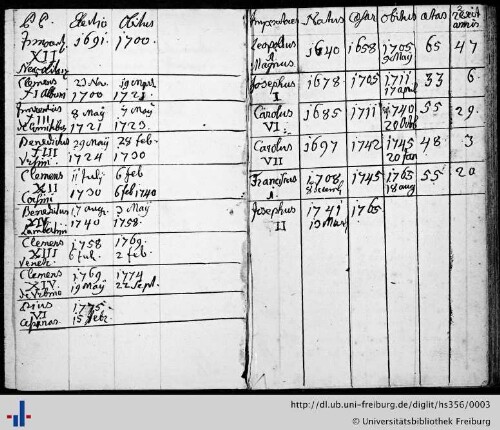 P. P. Electio Obitus
1691. 1700.
XII
Clemens 23 Nov. 19 Mart
XI Albani 1700 1721
8 Maÿ 7 Maÿ
XIII 1721 1723.
Benedictus 29 Maÿ 21 feb.
XIII 1724 1730
Clemens 11 Julÿ 6 feb
XII 1730 6 feb 1740
Corsini
Benedictus 17 aug. 3 Maÿ
XIV 1740 1758.
Lambertini
Clemens 1758 1769.
XIII 6 Jul. 2 feb.
Venet.
Clemens 1769 1774
XIV. 19 Maÿ 22 Sept.
Pius 1775
VI 15 febr.
Imperatores Natus Caesar Obitus aetas
Leopoldus 1640 1658 1705 65 47
Magnus 5 Maÿ
Josephus 1678 1705 1711 33 6
I 17 april
Carolus 1685 1711 1740 55 29.
VI 20 Octob
Carolus 1697 1742 1745 48 3
VII 20 Jan
Franciscus 1708 1745 1765 55 20
I. 18 aug
Josephus 1741 1765
II 13 Mart
http://dl.ub.uni-freiburg.de/diglit/hs356/0003
© Universitätsbibliothek Freiburg